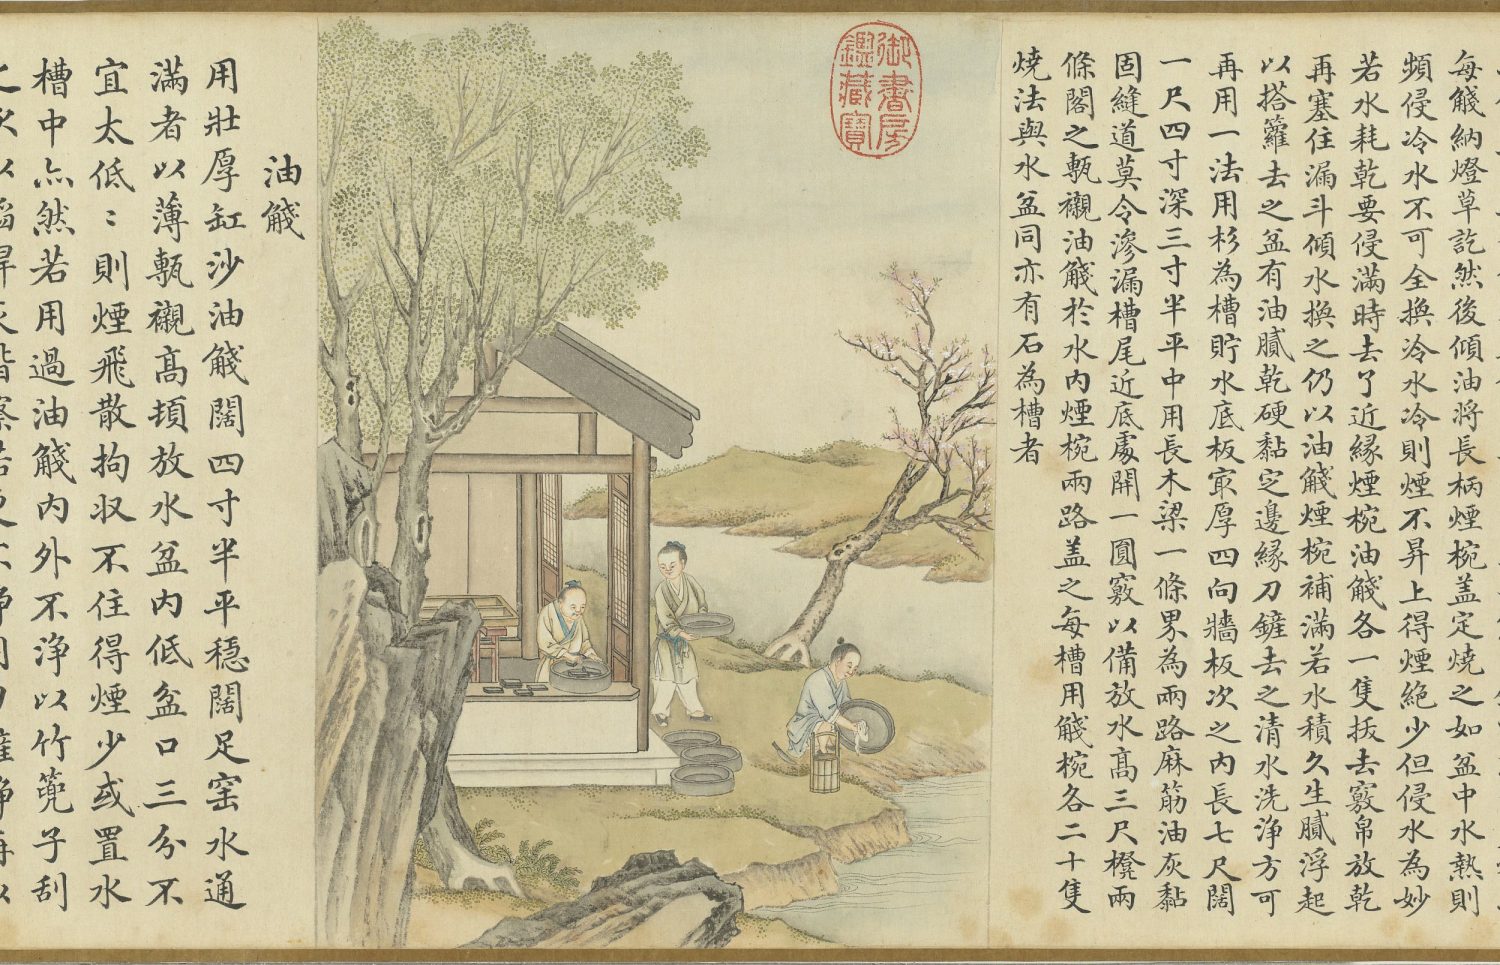 每琖納燈草訖然後傾油將長柄煙椀盖定燒之如盆中水熱則
頻侵冷水不可全換冷水冷則煙不昇上得煙絶少但侵水為妙
若水耗乾要侵滿時去了近縁煙椀油琖各一隻拔去竅帛放乾
再塞住漏斗傾水換之仍以油琖煙椀補滿若水積久生膩浮起
以搭籮去之盆有油膩乾硬黏定邊縁刀鏟去之清水洗淨方可
再用一法用杉為槽貯水底板㝡厚四向牆板次之內長七尺闊
一尺四寸深三寸半平中用長木梁一條界為兩路麻筋油灰黏
固縫道莫令滲漏槽尾近底處開一圓竅以備放水高三尺櫈兩
條閣之甎襯油琖於水內煙椀兩路盖之每槽用琖椀各二十隻
燒法與水盆同亦有石為槽者
御書房
鑑藏寶
油琖
用壯厚缸沙油琖闊四寸半平穩闊足窑水通
滿者以薄甎襯高頓放水盆內低盆口三分不
宜太低〻則煙飛散拘収不住得煙少或置水
槽中亦然若用過油琖內外不浄以竹篼子刮